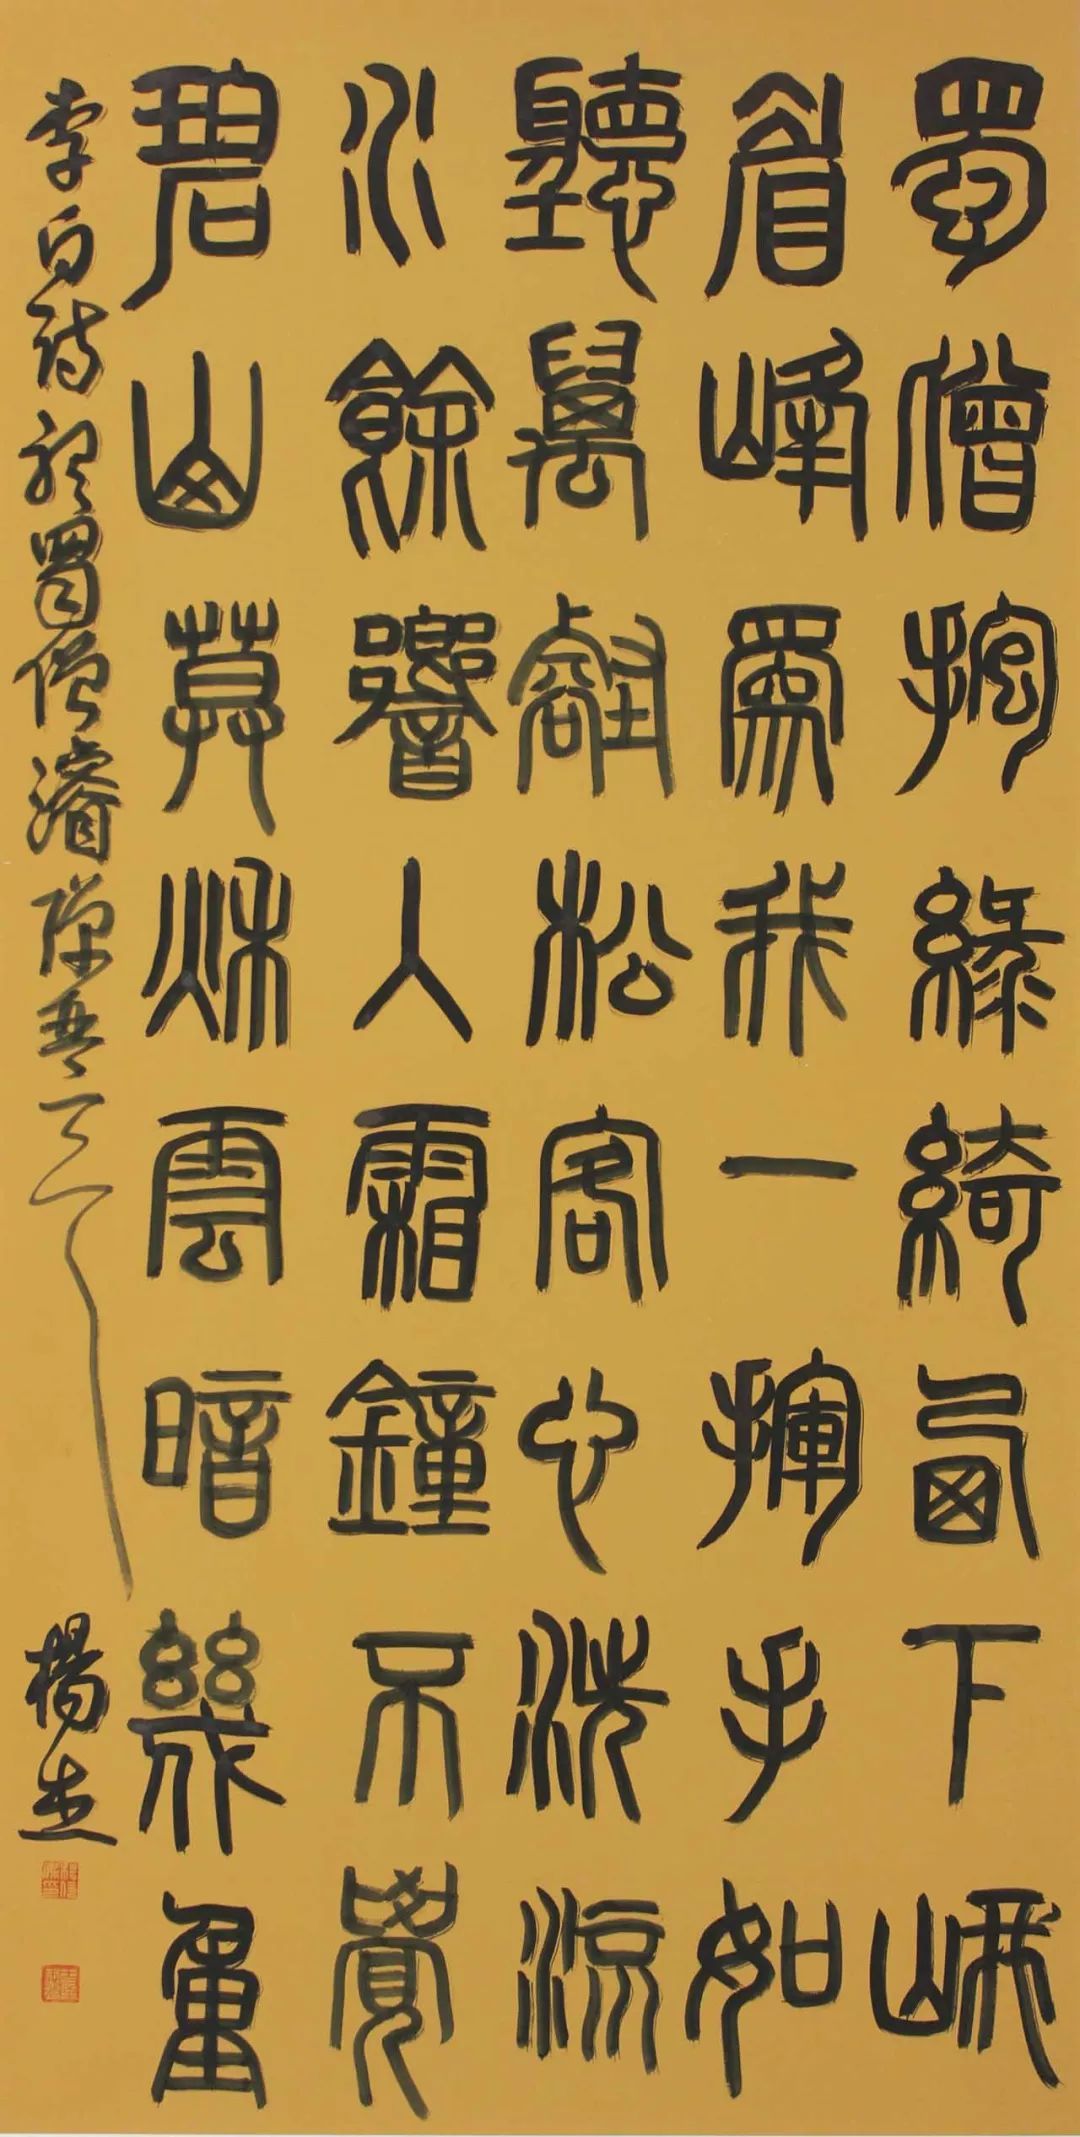 蜀僧抱綠綺西下峨
眉峰為我一揮手如
聽萬壑松客心洗流
水餘響入霜鐘不覺
碧山莫秋雲暗幾重
李白詩聽蜀僧濬彈琴
楊杰